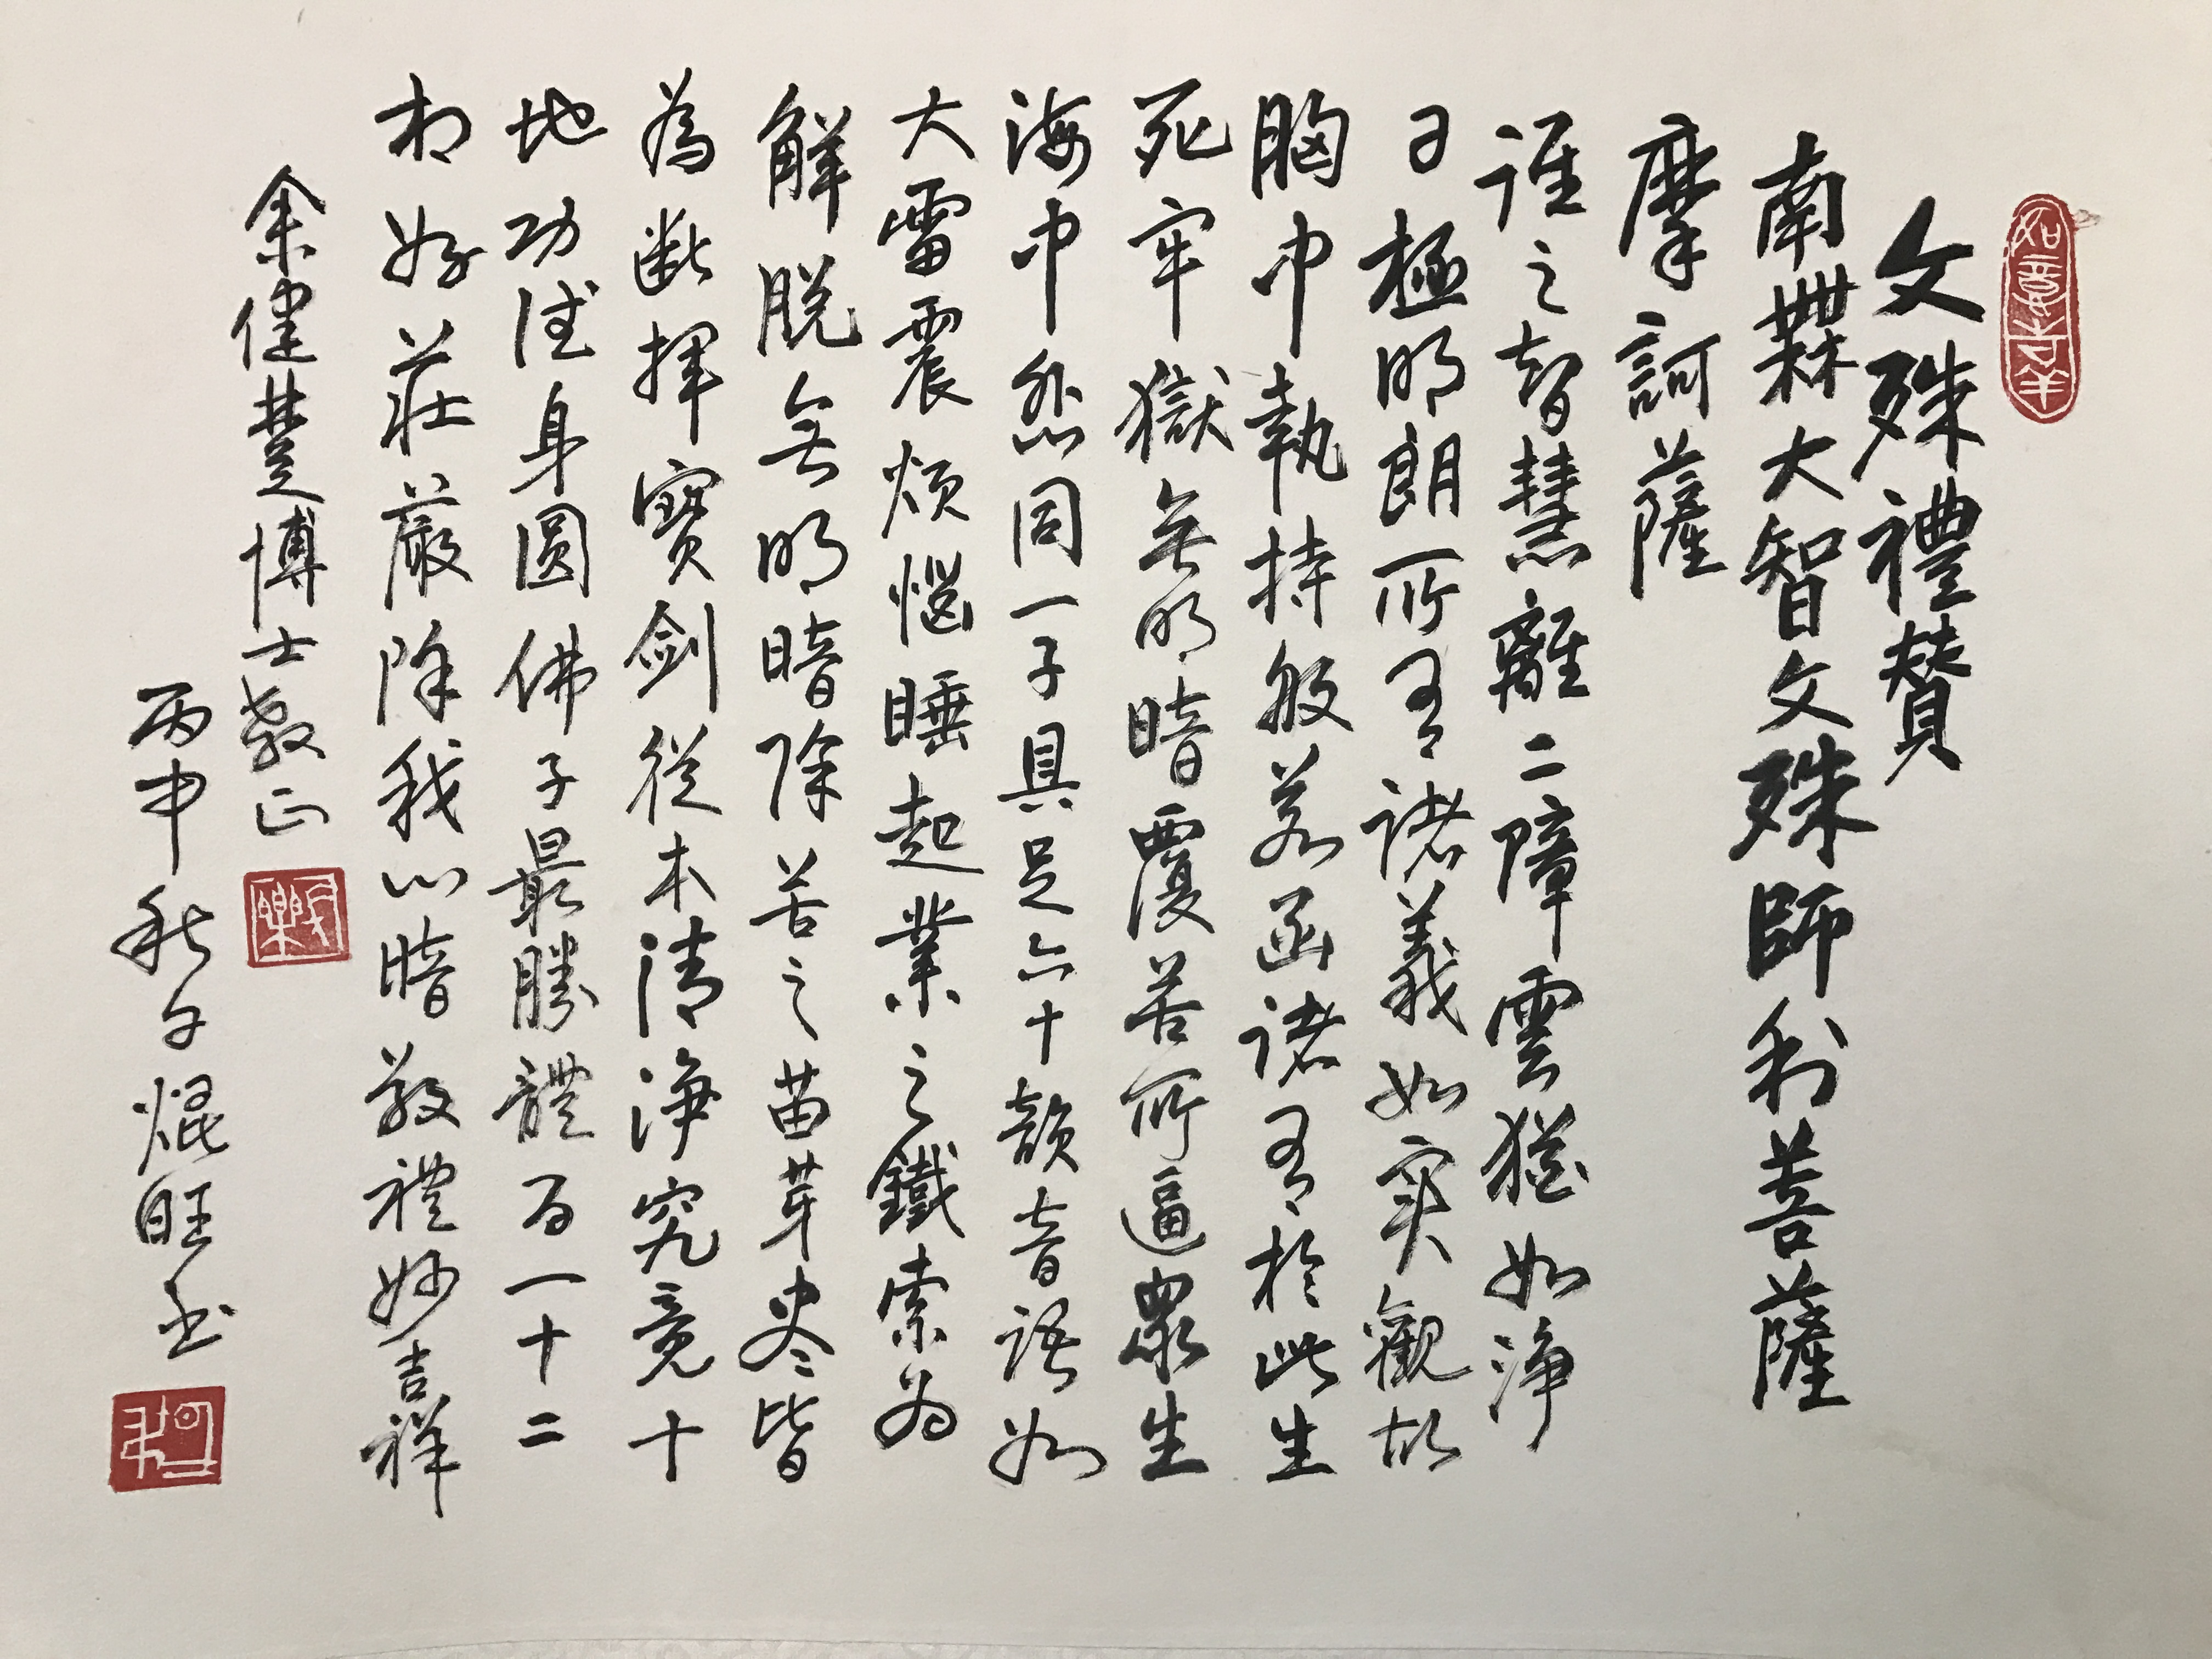 文殊禮贊
南無大智文殊師利菩薩
摩訶薩
誰之智慧離二障雲猶如淨
日極明朗所有諸義如實觀故
胸中執持般若函諸有於此生
死牢獄無明暗覆苦所逼眾生
海中悉同一子具足六十韻音語如
大雷震煩惱睡起業之鐵索為
解脫無明暗除苦之苗芽尽皆
為断揮寶剑從本清淨究竟十
地功德身圓佛子最勝體百一十二
相好莊嚴除我心暗敬禮妙吉祥
余健楚博士教正
丙申秋 焜旺书